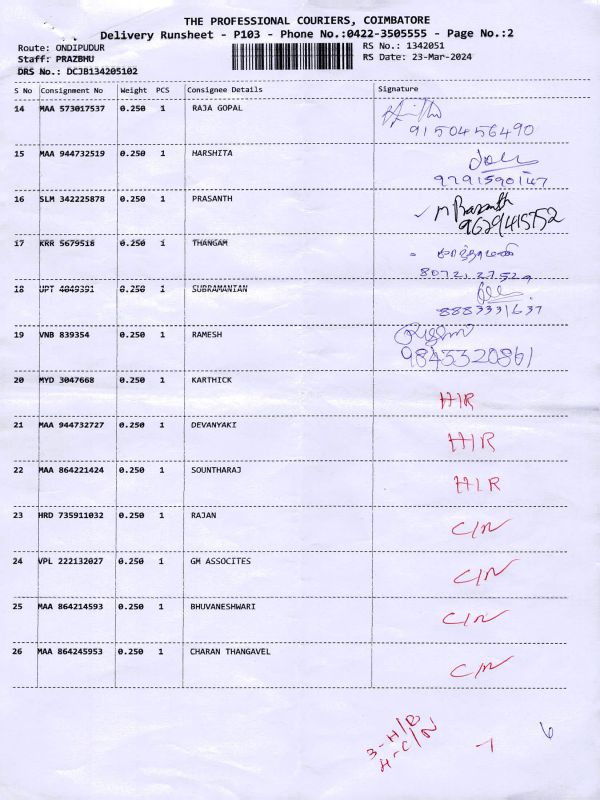 THE PROFESSIONAL COURIERS, COIMBATORE
Delivery Runsheet - P103 - Phone No.:0422-3505555 - Page No.:2
Route: ONDIPUDUR
Staff: PRAZBHU
DRS No.: DCJB134205102
RS No.: 1342051
RS Date: 23-Mar-2024
S No Consignment No Weight PCS Consignee Details Signature
14 MAA 573017537 0.250 1 RAJA GOPAL
9150456490
15 MAA 944732519 0.250 1 HARSHITA
9791590147
16 SLM 342225878 0.250 1 PRASANTH
9629415752
17 KRR 5679518 0.250 1 THANGAM
8072127529
18 UPT 4049391 0.250 1 SUBRAMANIAN
8883331637
19 VNB 839354 0.250 1 RAMESH
9843320861
20 MYD 3047668 0.250 1 KARTHICK
H/R
21 MAA 944732727 0.250 1 DEVANYAKI
H/R
22 MAA 864221424 0.250 1 SOUNTHARAJ
H/R
23 HRD 735911032 0.250 1 RAJAN
C/N
24 VPL 222132027 0.250 1 GM ASSOCITES
C/N
25 MAA 864214593 0.250 1 BHUVANESHWARI
C/N
26 MAA 864245953 0.250 1 CHARAN THANGAVEL
C/N
3-H/R
4-C/N
-7
6